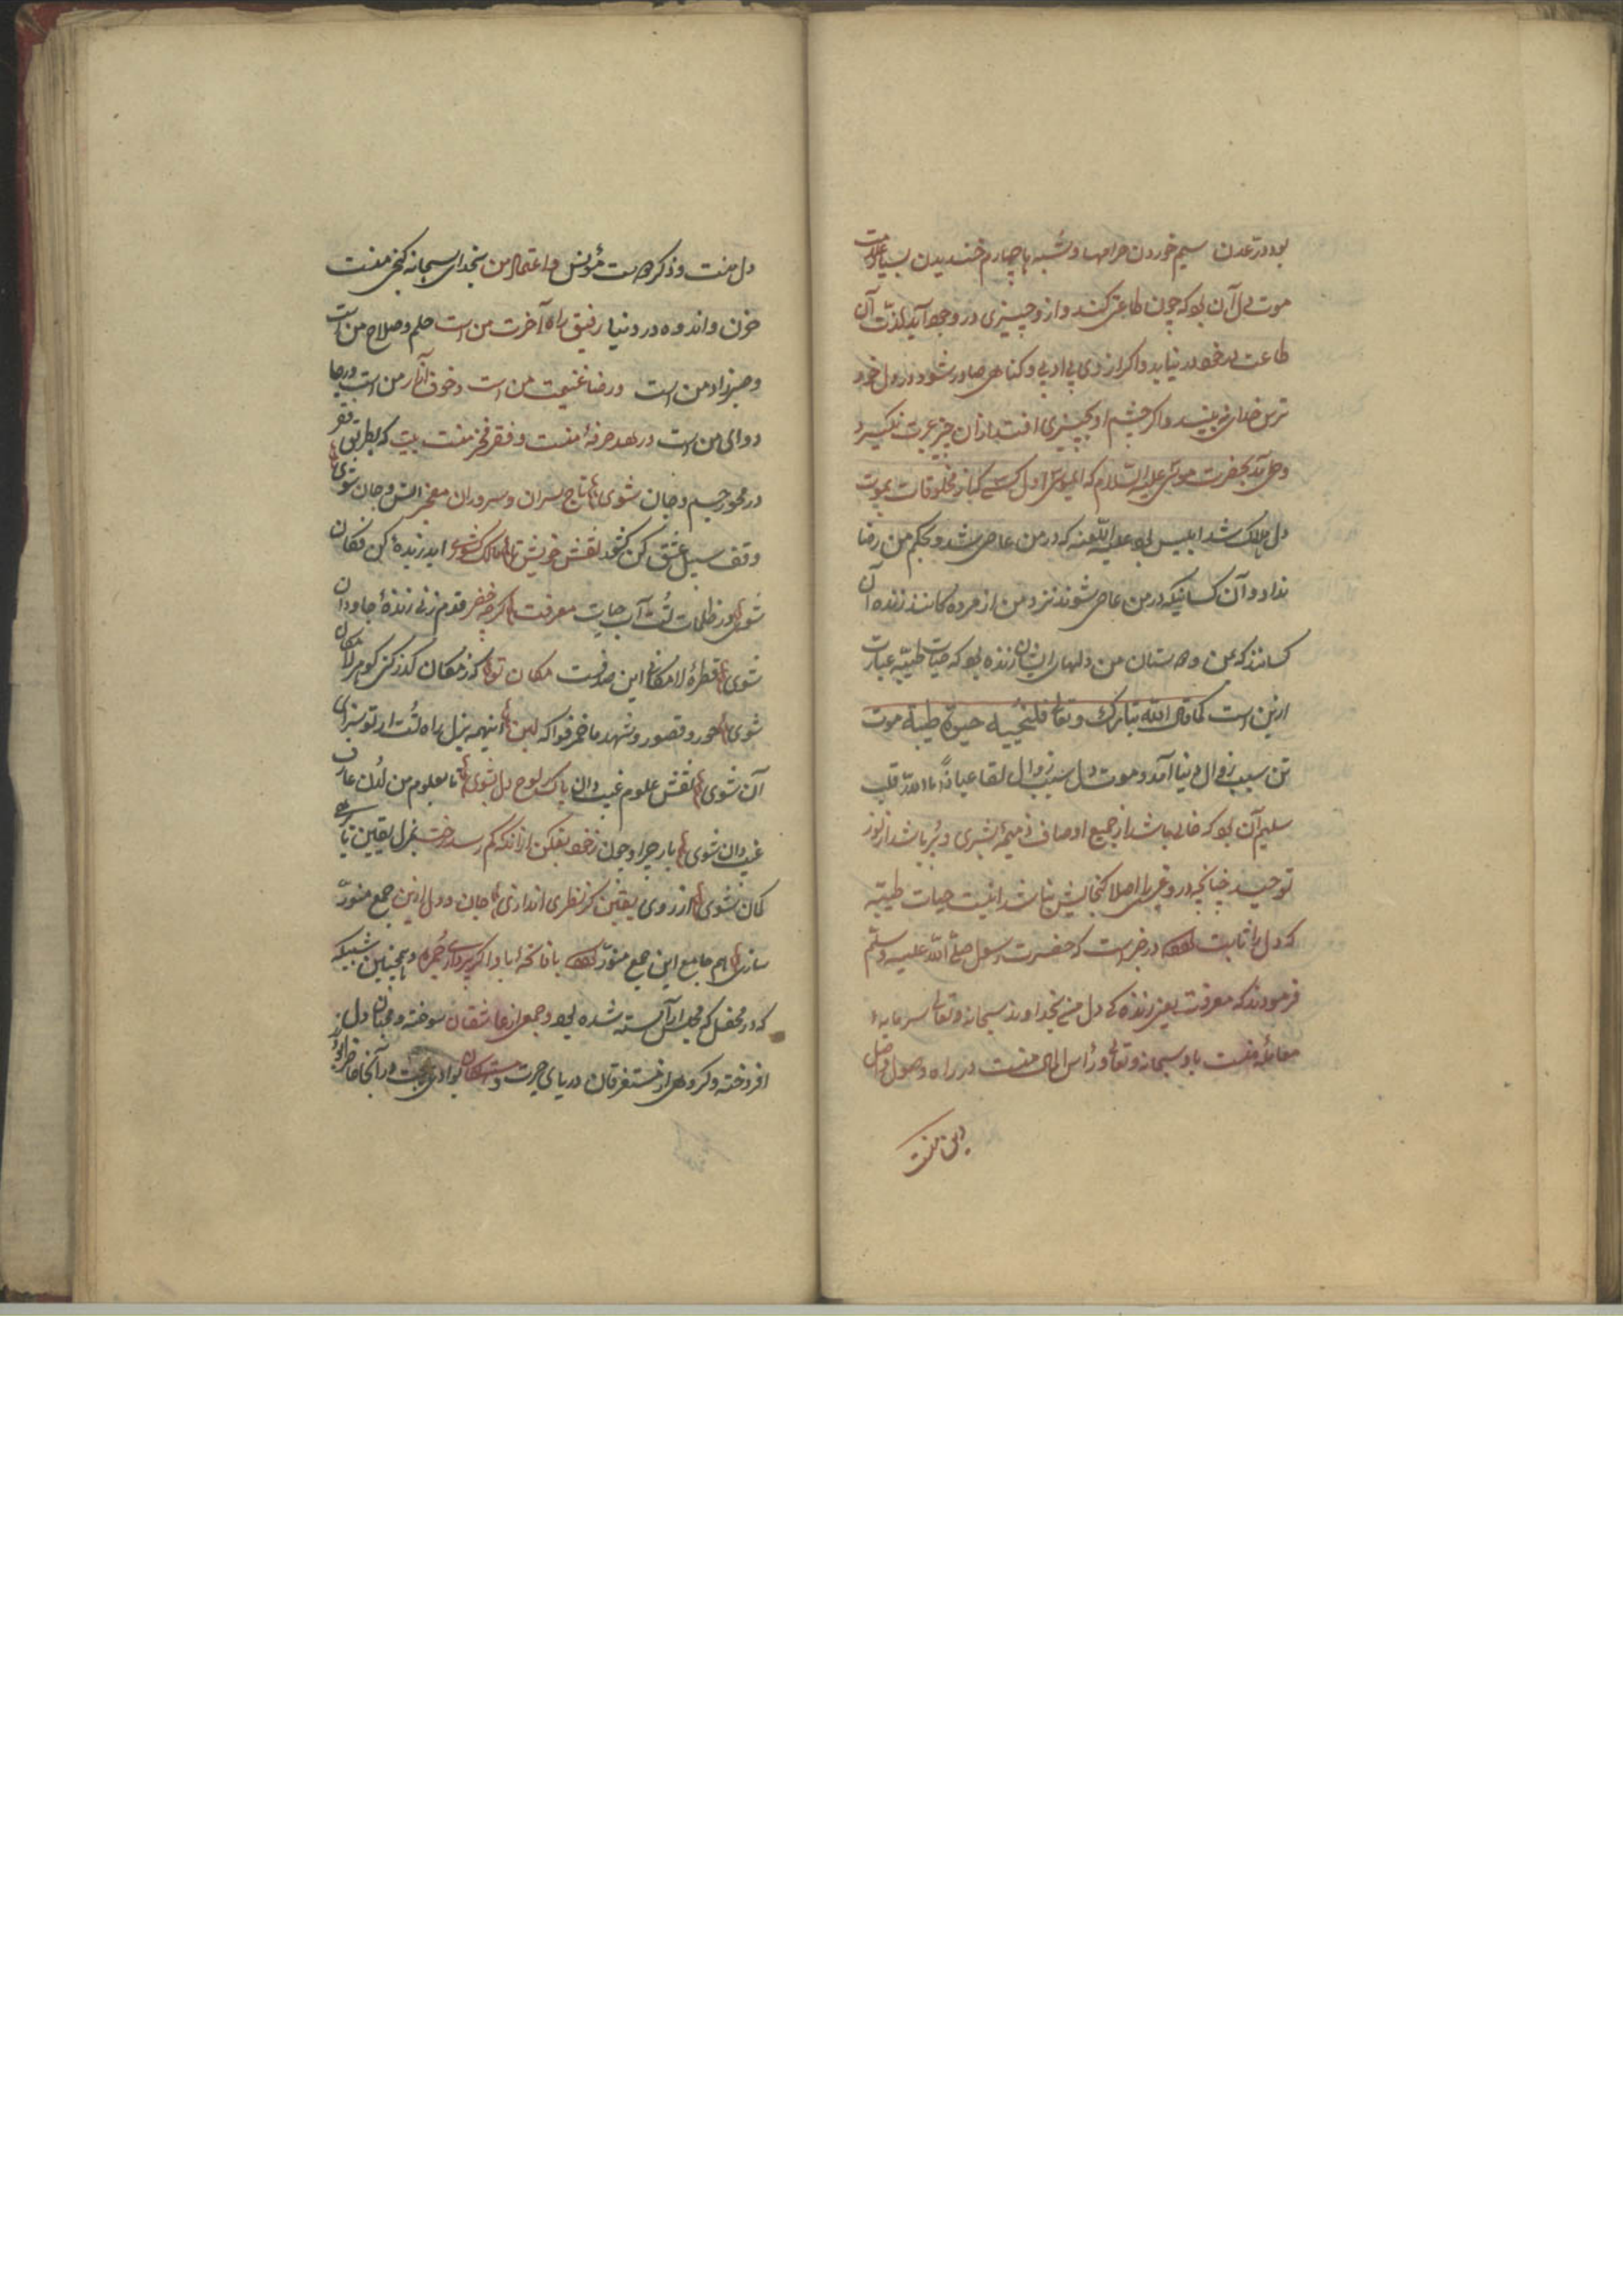 بود در تمدن سیم خوردن حرامها و شبهها چهارم خندیدن بسیار علامت
موت دل آن بود که چون طاعتی کند و از و چیزی در وجود آید لذّت آن
طاعت در خود در نیابد و اگر از وی بی ادبی و گناهی صادر شود در دل خود
ترس خدای نبیند و اگر چشم او بچیزی افتد از آن چیز عبرت نگیرد
وحی آمد بحضرت موسی علیه السلام که ای موسی اول کسی که از مخلوقات بموت
دل هلاک شد ابلیس بود علیه اللعنه که در من عاصی شد و بحکم من رضا
نداد و آن کسانیکه در من عاصی شوند نزد من از مرده کانند زنده آن
کسانند که من دوستان من دلهای ایشان زنده بود که حیات طیبّه عبارت
ازین است کما قال الله تبارک و تعالی فلنحیینه حیوة طیبة موت
تن سبب زوال دنیا آمد و موت دل سبب زوال لقا عیاذًا بالله قلب
سلیم آن بود که خالی باشد از جمیع اوصاف ذمیمۀ بشری و پُر باشد از نور
توحید چنانچه در و غیر را اصلا گنجایش نباشد اینست حیات طیبّه
که دل را ثابت بود در خبر است که حضرت رسول صلّی الله علیه و سلّم
فرمودند که معرفت یعنی زنده کی دل من بخداوند سبحانه و تعالی سرمایه
معاملۀ منست با و سبحانه و تعالی و رأس المال منست در راه وصول و عقل
دین منست
دل منست و ذکر دوست مؤنس و اعتماد من بخدای سبحانه گنج منست
حزن و اندوه در دنیا رفیق راه آخرت من است حلم و صلاح من است
و صبر زاد من است و رضا غنیمت من است و خوف آثار من است و رجا
دوای من است و زهد حرفۀ منست و فقر فخر منست بیت گر بطریق فقر
در محو جسم و جان شوی تاج سران و سروران مفخر انس و جان شوی
وقف سبیل عشق کن کشور نفس خویش تا مالک کشور ابد زبدۀ کن فکان
شوی در ظلمات تُست آب حیات معرفت گر چو خضر قدم زنی زندۀ جاودان
شوی قطرۀ لامکانی این صدفست مکان تو گر ز مکان گذر کنی گوهر لامکان
شوی حور و قصور و شهد ما خمر فواکه لبن اینهمه نزل راه تُست ار تو سزای
آن شوی نقش علوم غیب دان پاک ز لوح دل بشوی تا بعلوم من لَدُن عارف
غیب دان شوی بار چرا و چون ز خود بفکن از آنکه کم رسد رخت بمنزل یقین تا
گمان شوی از روی یقین گر نظری اندازی جان و دل ازین جمع منوّر
سازی هم جامع این جمع منوّر بود با فاتحه ابا و اگر پردازی
که در محفل که مجلس آراسته شده بود و جمعی از عاشقان سوخته و محبّان دل
افروخته و گروهی از مستغرقان دریای حیرت و بوادی محبت در آنجا حاضر